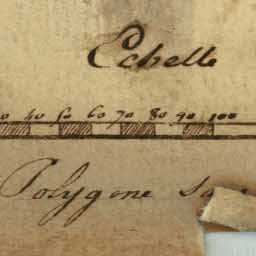 Echelle
0 40 50 60 70 80 90 100
Polygone